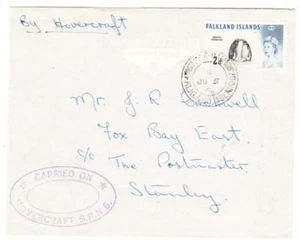 By Hovercraft
FALKLAND ISLANDS
2d
Mr. J. R.
Fox Bay East.
c/o The Postmaster
Stanley.
CARRIED ON
HOVERCRAFT S.R.N.6.